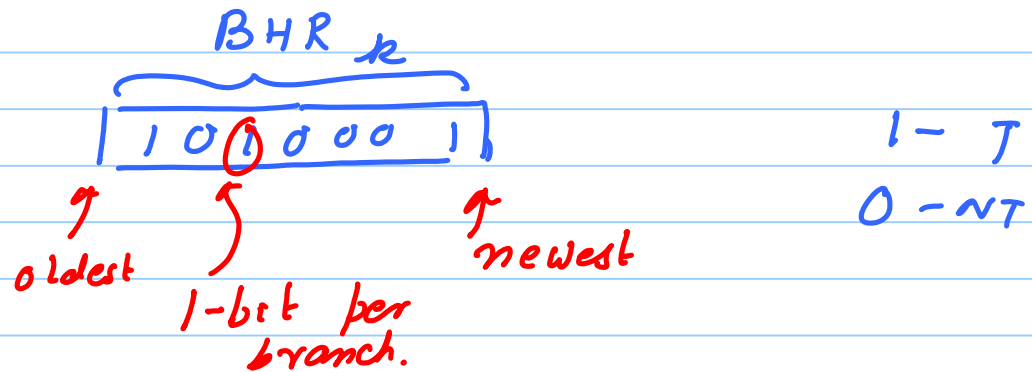 BHR k
1 0 1 0 0 0 1
1 - T
0 - NT
oldest
newest
1-bit per
branch.